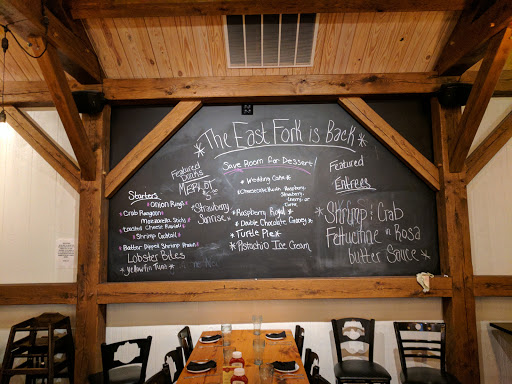 * The East Fork is Back *
Save Room for Dessert!
* Wedding Cake *
* Cheesecake Raspberry
Strawberry
Cherry or
* Raspberry Royal *
* Double Chocolate
* Turtle Pie *
* Pistachio Ice Cream
Featured
Drinks
Merlot
Strawberry
Sunrise
Starters
* Onion Rings
* Crab Rangoon
Mozzarella Sticks
* Toasted Cheese Ravioli
* Shrimp Cocktail
* Batter Dipped Shrimp
Lobster Bites
* Yellowfin Tuna *
Featured
Entrees
* Shrimp & Crab
Fettuccine in Rosa
butter Sauce *